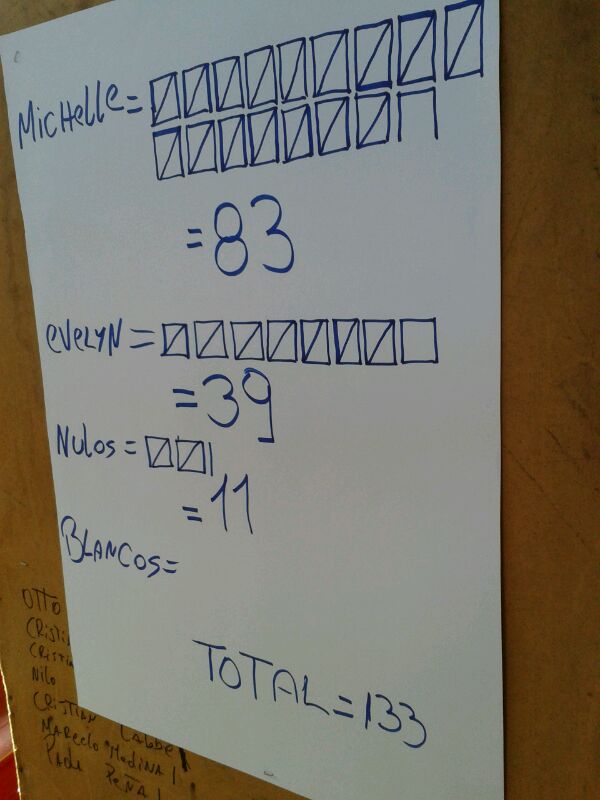 MICHELLE =
= 83
EVELYN =
= 39
NULOS =
= 11
BLANCOS =
TOTAL = 133
OTTO
CRISTI
CRISTIA
NILO
CRISTIAN LABBE
MARCELO MEDINA I
PEÑA I